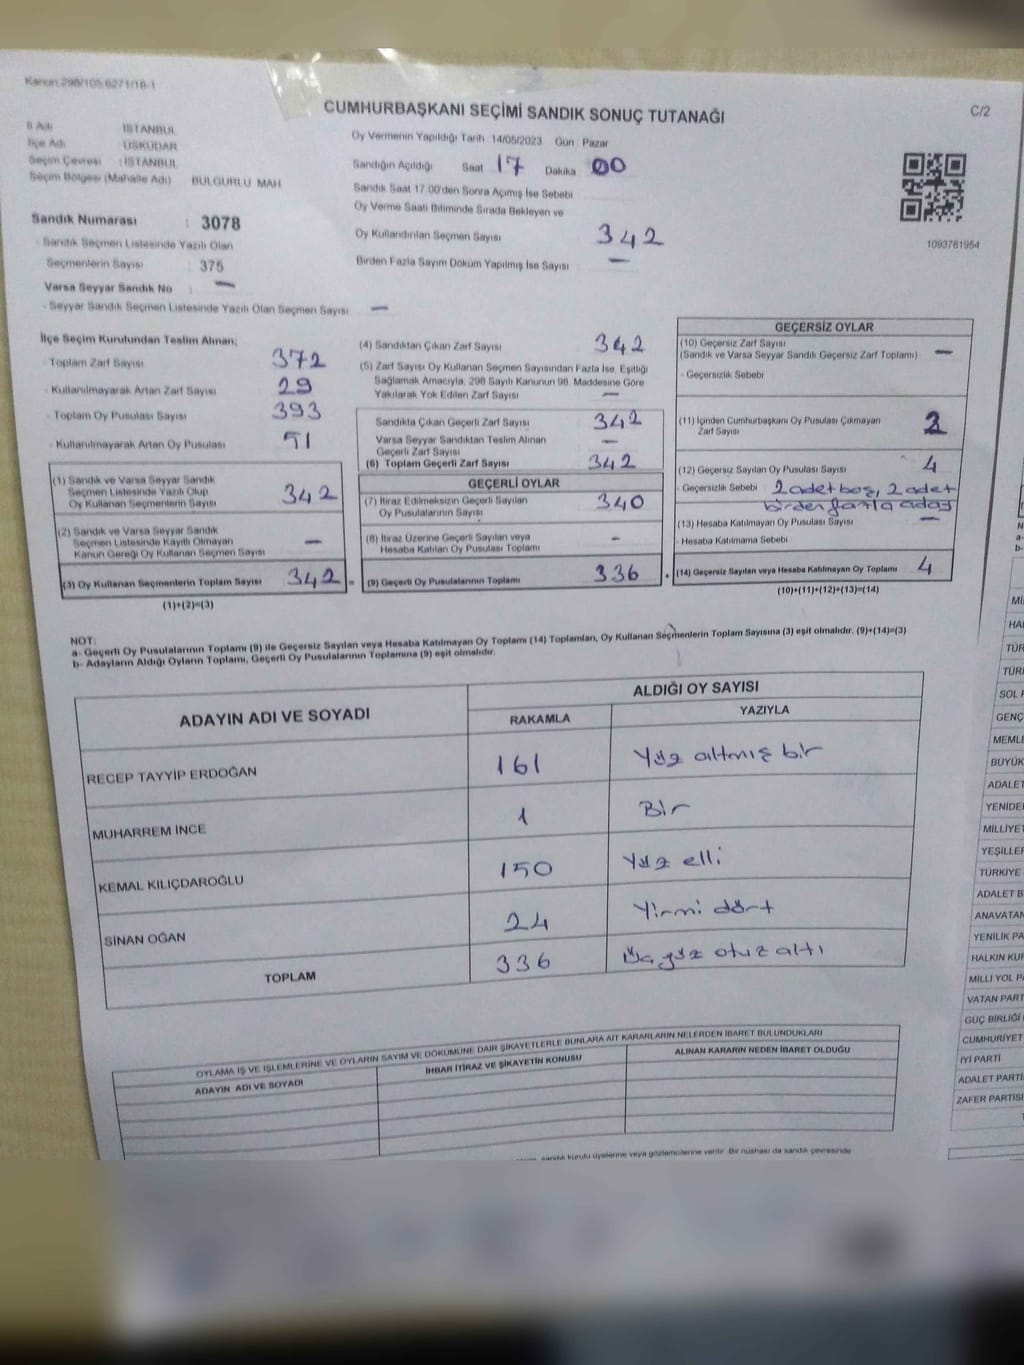 Kanun:298/105,6271/18-1
CUMHURBAŞKANI SEÇİMİ SANDIK SONUÇ TUTANAĞI
C/2
İl Adı İSTANBUL
İlçe Adı ÜSKÜDAR
Seçim Çevresi : İSTANBUL
Seçim Bölgesi (Mahalle Adı) BULGURLU MAH
Sandık Numarası : 3078
- Sandık Seçmen Listesinde Yazılı Olan
Seçmenlerin Sayısı : 375
Varsa Seyyar Sandık No : —
- Seyyar Sandık Seçmen Listesinde Yazılı Olan Seçmen Sayısı —
Oy Vermenin Yapıldığı Tarih 14/05/2023 Gün Pazar
Sandığın Açıldığı Saat 17 Dakika 00
Sandık Saat 17.00'den Sonra Açımış İse Sebebi
Oy Verme Saati Bitiminde Sırada Bekleyen ve
Oy Kullandırılan Seçmen Sayısı 342
Birden Fazla Sayım Döküm Yapılmış İse Sayısı —
1093781954
İlçe Seçim Kurulundan Teslim Alınan;
- Toplam Zarf Sayısı 372
- Kullanılmayarak Artan Zarf Sayısı 29
- Toplam Oy Pusulası Sayısı 393
- Kullanılmayarak Artan Oy Pusulası 51
(1) Sandık ve Varsa Seyyar Sandık
Seçmen Listesinde Yazılı Olup
Oy Kullanan Seçmenlerin Sayısı 342
(2) Sandık ve Varsa Seyyar Sandık
Seçmen Listesinde Kayıtlı Olmayan
Kanun Gereği Oy Kullanan Seçmen Sayısı —
(3) Oy Kullanan Seçmenlerin Toplam Sayısı 342 =
(1)+(2)=(3)
(4) Sandıktan Çıkan Zarf Sayısı 342
(5) Zarf Sayısı Oy Kullanan Seçmen Sayısından Fazla İse, Eşitliği
Sağlamak Amacıyla, 298 Sayılı Kanunun 98. Maddesine Göre
Yakılarak Yok Edilen Zarf Sayısı —
Sandıkta Çıkan Geçerli Zarf Sayısı 342
Varsa Seyyar Sandıktan Teslim Alınan
Geçerli Zarf Sayısı —
(6) Toplam Geçerli Zarf Sayısı 342
GEÇERLİ OYLAR
(7) İtiraz Edilmeksizin Geçerli Sayılan
Oy Pusulalarının Sayısı 340
(8) İtiraz Üzerine Geçerli Sayılan veya
Hesaba Katılan Oy Pusulası Toplamı -
(9) Geçerli Oy Pusulalarının Toplamı 336 +
GEÇERSİZ OYLAR
(10) Geçersiz Zarf Sayısı
(Sandık ve Varsa Seyyar Sandık Geçersiz Zarf Toplamı) —
- Geçersizlik Sebebi
(11) İçinden Cumhurbaşkanı Oy Pusulası Çıkmayan
Zarf Sayısı 2
(12) Geçersiz Sayılan Oy Pusulası Sayısı 4
- Geçersizlik Sebebi 2 adet boş, 2 adet
birden fazla aday
(13) Hesaba Katılmayan Oy Pusulası Sayısı —
- Hesaba Katılmama Sebebi
(14) Geçersiz Sayılan veya Hesaba Katılmayan Oy Toplamı 4
(10)+(11)+(12)+(13)=(14)
NOT:
a- Geçerli Oy Pusulalarının Toplamı (9) ile Geçersiz Sayılan veya Hesaba Katılmayan Oy Toplamı (14) Toplamları, Oy Kullanan Seçmenlerin Toplam Sayısına (3) eşit olmalıdır. (9)+(14)=(3)
b- Adayların Aldığı Oyların Toplamı, Geçerli Oy Pusulalarının Toplamına (9) eşit olmalıdır.
ADAYIN ADI VE SOYADI
ALDIĞI OY SAYISI
RAKAMLA YAZIYLA
RECEP TAYYİP ERDOĞAN 161 Yüz altmış bir
MUHARREM İNCE 1 Bir
KEMAL KILIÇDAROĞLU 150 Yüz elli
SİNAN OĞAN 24 Yirmi dört
TOPLAM 336 Üçyüz otuz altı
OYLAMA İŞ VE İŞLEMLERİNE VE OYLARIN SAYIM VE DÖKÜMÜNE DAİR ŞİKAYETLERLE BUNLARA AİT KARARLARIN NELERDEN İBARET BULUNDUKLARI
ADAYIN ADI VE SOYADI
İHBAR İTİRAZ VE ŞİKAYETİN KONUSU
ALINAN KARARIN NEDEN İBARET OLDUĞU
sandık kurulu üyelerine veya gözlemcilerine verilir. Bir nüshası da sandık çevresinde
N
a-
b-
Mİ
HA
TÜR
TÜRK
SOL P
GENÇ
MEMLE
BÜYÜK
ADALET
YENİDE
MİLLİYET
YEŞİLLER
TÜRKİYE
ADALET B
ANAVATAN
YENİLİK PA
HALKIN KUR
MİLLİ YOL PA
VATAN PART
GÜÇ BİRLİĞİ
CUMHURİYET
İYİ PARTİ
ADALET PARTİS
ZAFER PARTİSİ